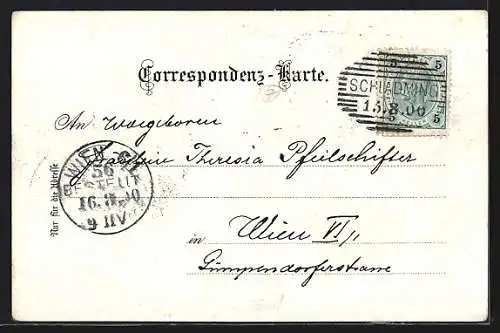 Correspondenz-Karte.
5 5
SCHLADMING
15.8.00
5 5
An Wolgeboren
Fräulein Theresia Pfeilschifter
WIEN
56
BESTELLT
16. 8. 00
9 IIV
Nur für die Adresse
in Wien VI/1
Gumpendorferstrasse